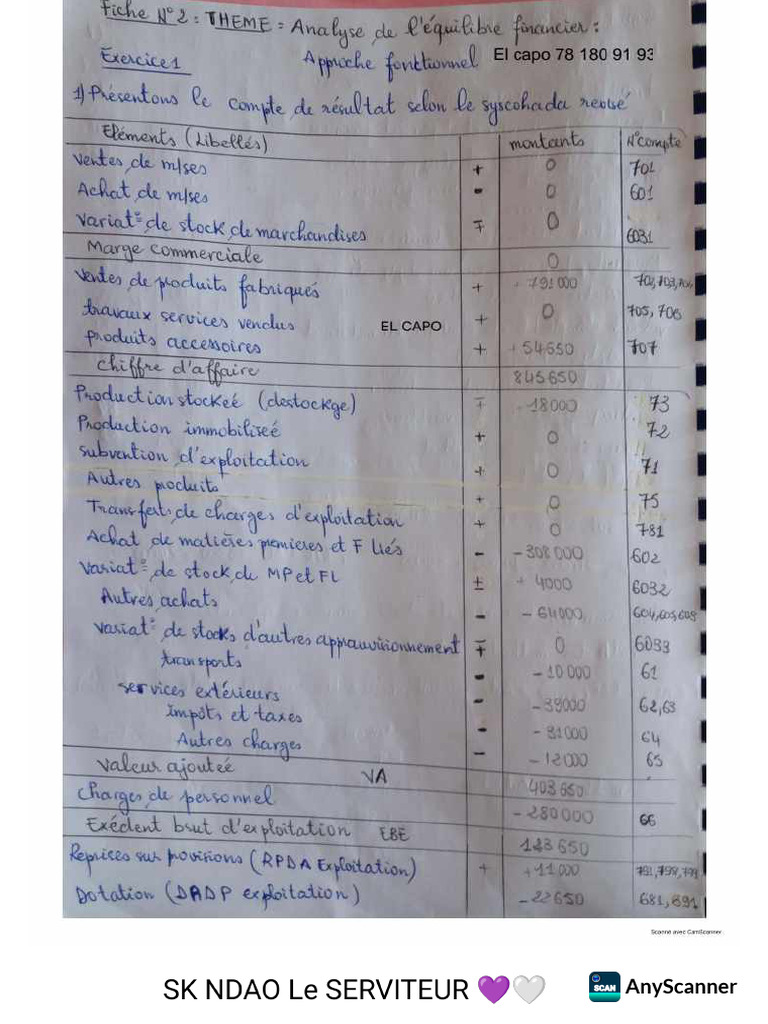 Fiche N°2 : THEME = Analyse de l'équilibre financier :
Exercice 1 Approche fonctionnel El capo 78 180 91 93
1) Présentons le compte de résultat selon le syscohada revisé
Eléments (Libellés) montants N°compte
Ventes de m/ses + 0 701
Achat de m/ses - 0 601
Variat° de stock de marchandises ∓ 0 6031
Marge commerciale 0
Ventes de produits fabriqués + + 791 000 702,703,704
travaux services vendus + 0 705, 706
EL CAPO
produits accessoires + + 54650 707
Chiffre d'affaire 845 650
Production stockeé (destockge) ∓ - 18 000 73
Production immobiliseé + 0 72
Subvention d'exploitation + 0 71
Autres produits + 0 75
Transferts de charges d'exploitation + 0 781
Achat de matières premieres et F liés - - 308 000 602
Variat° de stock de MP et FL ± + 4000 6032
Autres achats - - 64000 604,605,608
Variat° de stocks d'autres approuvisionnement ∓ 0 6033
transports - - 10 000 61
services extérieurs - - 39000 62,63
Impôts et taxes - 64
Autres charges - - 12000 65
Valeur ajouteé VA 403 650
Charges de personnel - 280 000 66
Exédent brut d'exploitation EBE 123 650
Reprises sur povisions (RPDA Exploitation) + + 11 000 791,798,799
Dotation (DADP exploitation) - 22 650 681,691
Scanné avec CamScanner
SK NDAO Le SERVITEUR 💜🤍
SCAN AnyScanner